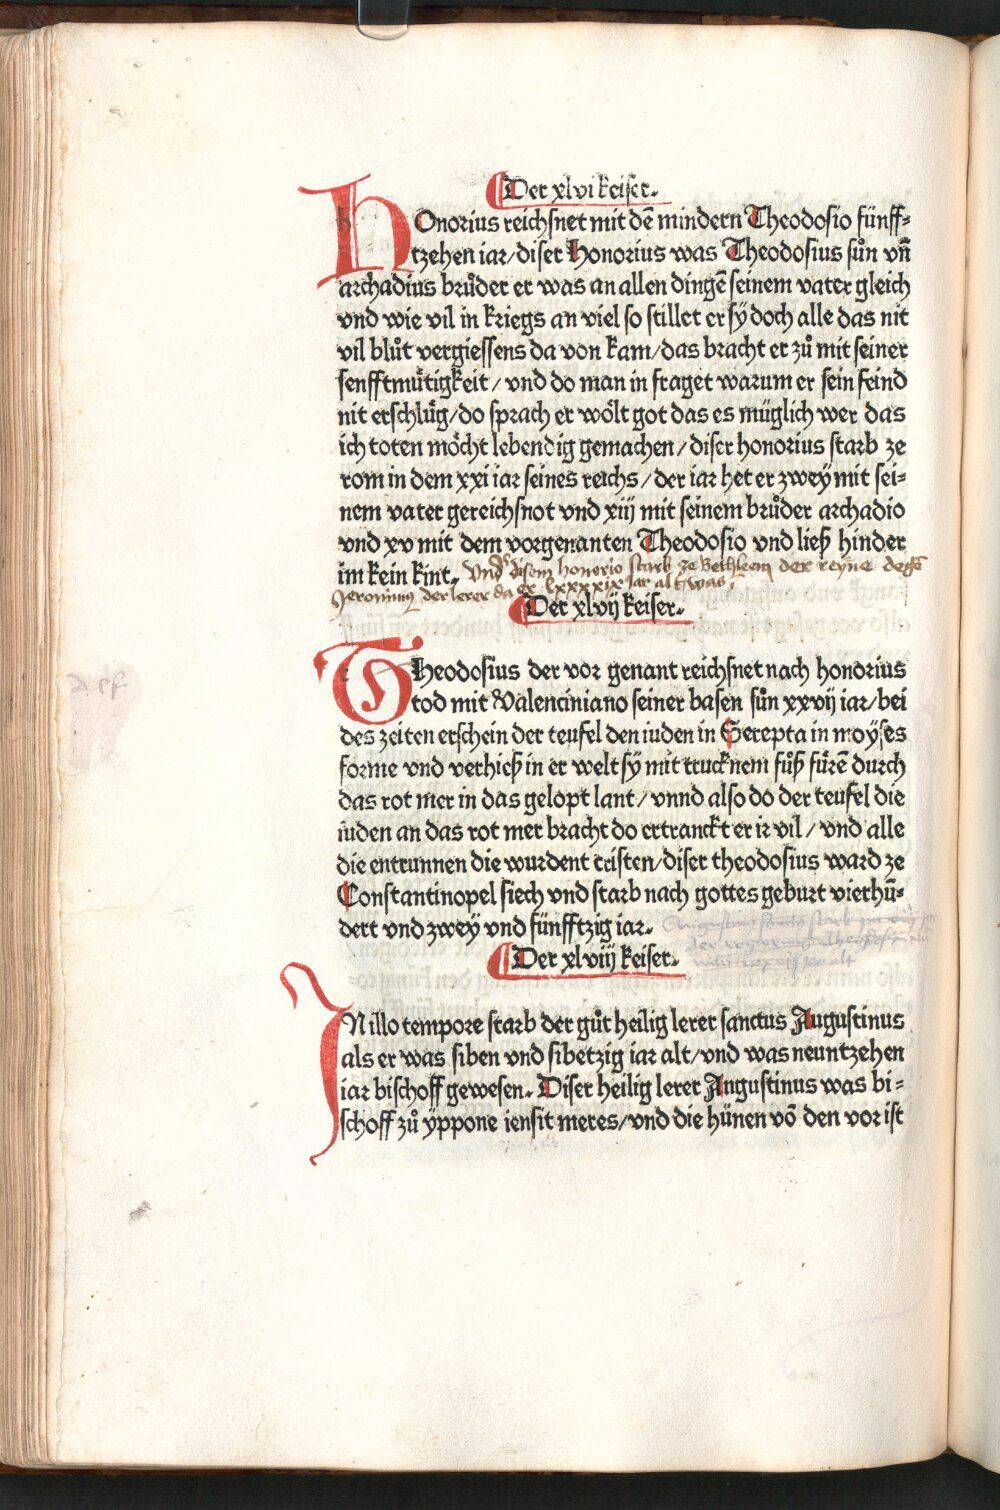 Der xlvi keiser.
HOnorius reichsnet mit dē mindern Theodosio fünff⸗
tzehen iar/diser Honorius was Theodosius sůn vn̄
archadius brůder er was an allen dingē seinem vater gleich
vnd wie vil in kriegs an viel so stillet er sÿ doch alle das nit
vil blůt vergiessens da von kam/das bracht er zů mit seiner
senfftmütigkeit/vnd do man in fraget warum er sein feind
nit erschlüg/do sprach er wölt got das es müglich wer das
ich toten möcht lebendig gemachen/diser honorius starb ze
rom in dem xxi iar seines reichs/der iar het er zweÿ mit sei⸗
nem vater gereichsnot vnd xiij mit seinem brůder archadio
vnd xv mit dem vorgenanten Theodosio vnd ließ hinder
im kein kint.
Vnd disem honorio starb ze Bethleem der reyne degē
Jeronimus der lerer da er lxxxxix Jar alt was
Der xlvij keiser.
THeodosius der vor genant reichsnet nach honorius
tod mit Valenciniano seiner basen sůn xxvij iar/bei
des zeiten erschein der teufel den iuden in Serepta in moÿses
forme vnd verhieß in er welt sÿ mit trucknem fůß fürē durch
das rot mer in das gelopt lant/vnnd also do der teufel die
iuden an das rot mer bracht do ertranckt er ir vil/vnd alle
die entrunnen die wurdent cristen/diser theodosius ward ze
Constantinopel siech vnd starb nach gottes geburt vierhū⸗
dert vnd zweÿ vnd fünfftzig iar.
Augustinus starb
der regierung Theodosii
lxxvij jar alt
Der xlviij keiser.
IN illo tempore starb der gůt heilig lerer sanctus Augustinus
als er was siben vnd sibetzig iar alt/vnd was neuntzehen
iar bischoff gewesen. Diser heilig lerer Augustinus was bi⸗
schoff zů ÿppone iensit meres/vnd die hünen vō den vor ist